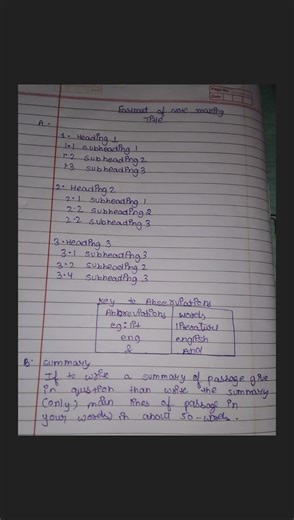 Format of Note making
Title
A -
1. Heading 1
1.1 Subheading 1
1.2 Subheading 2
1.3 Subheading 3
2. Heading 2
2.1 Subheading 1
2.2 Subheading 2
2.2 Subheading 3
3. Heading 3
3.1 Subheading 3
3.2 Subheading 2
3.4 Subheading 3
Key to Abbreviations
Abbreviations words
eg: lit literature
eng english
& And
B. Summary
If to write a summary of passage give
in question than write the summary
(only) main lines of passage in
your words in about 50-words.